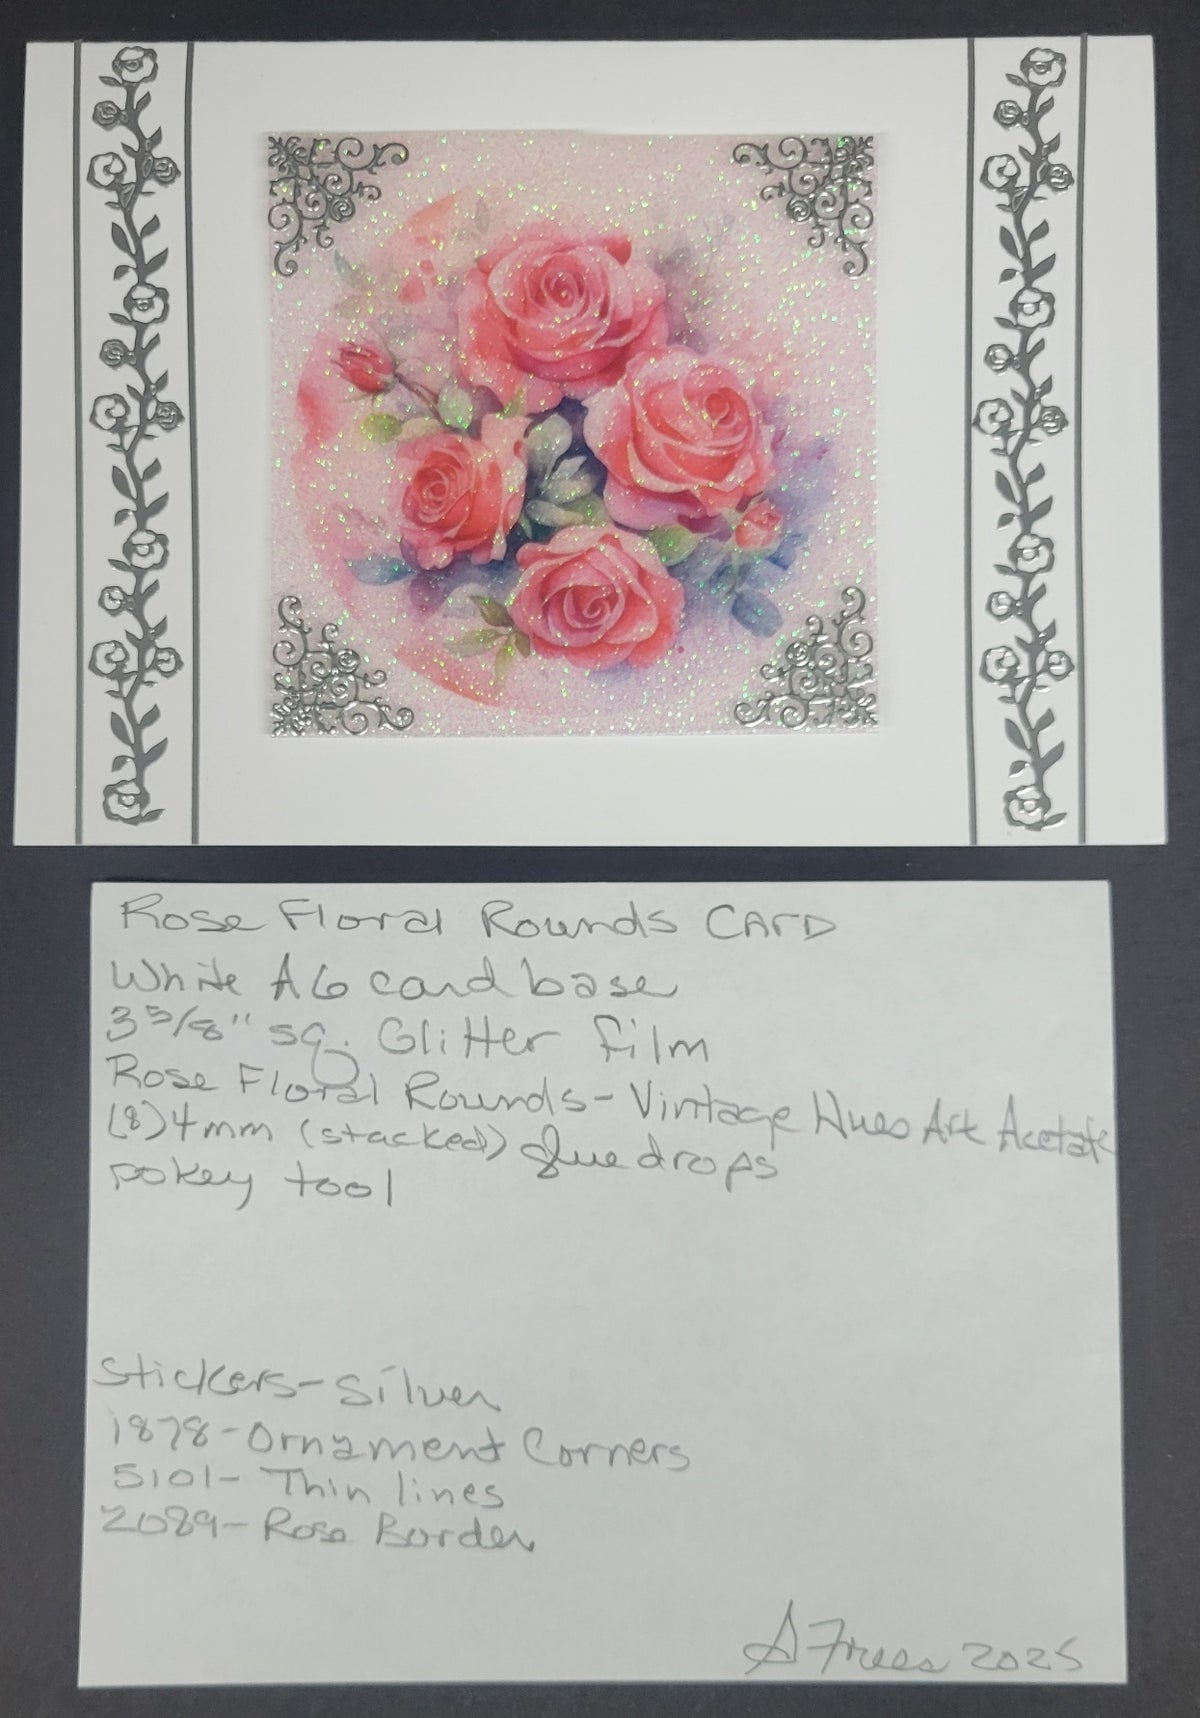 Rose Floral Rounds CARD
White A6 card base
3 5/8" sq. Glitter film
Rose Floral Rounds - Vintage Hues Art Acetate
(8) 4mm (stacked) glue drops
pokey tool
Stickers - Silver
1878 - Ornament Corners
5101 - Thin lines
2089 - Rose Border
S Frees 2025